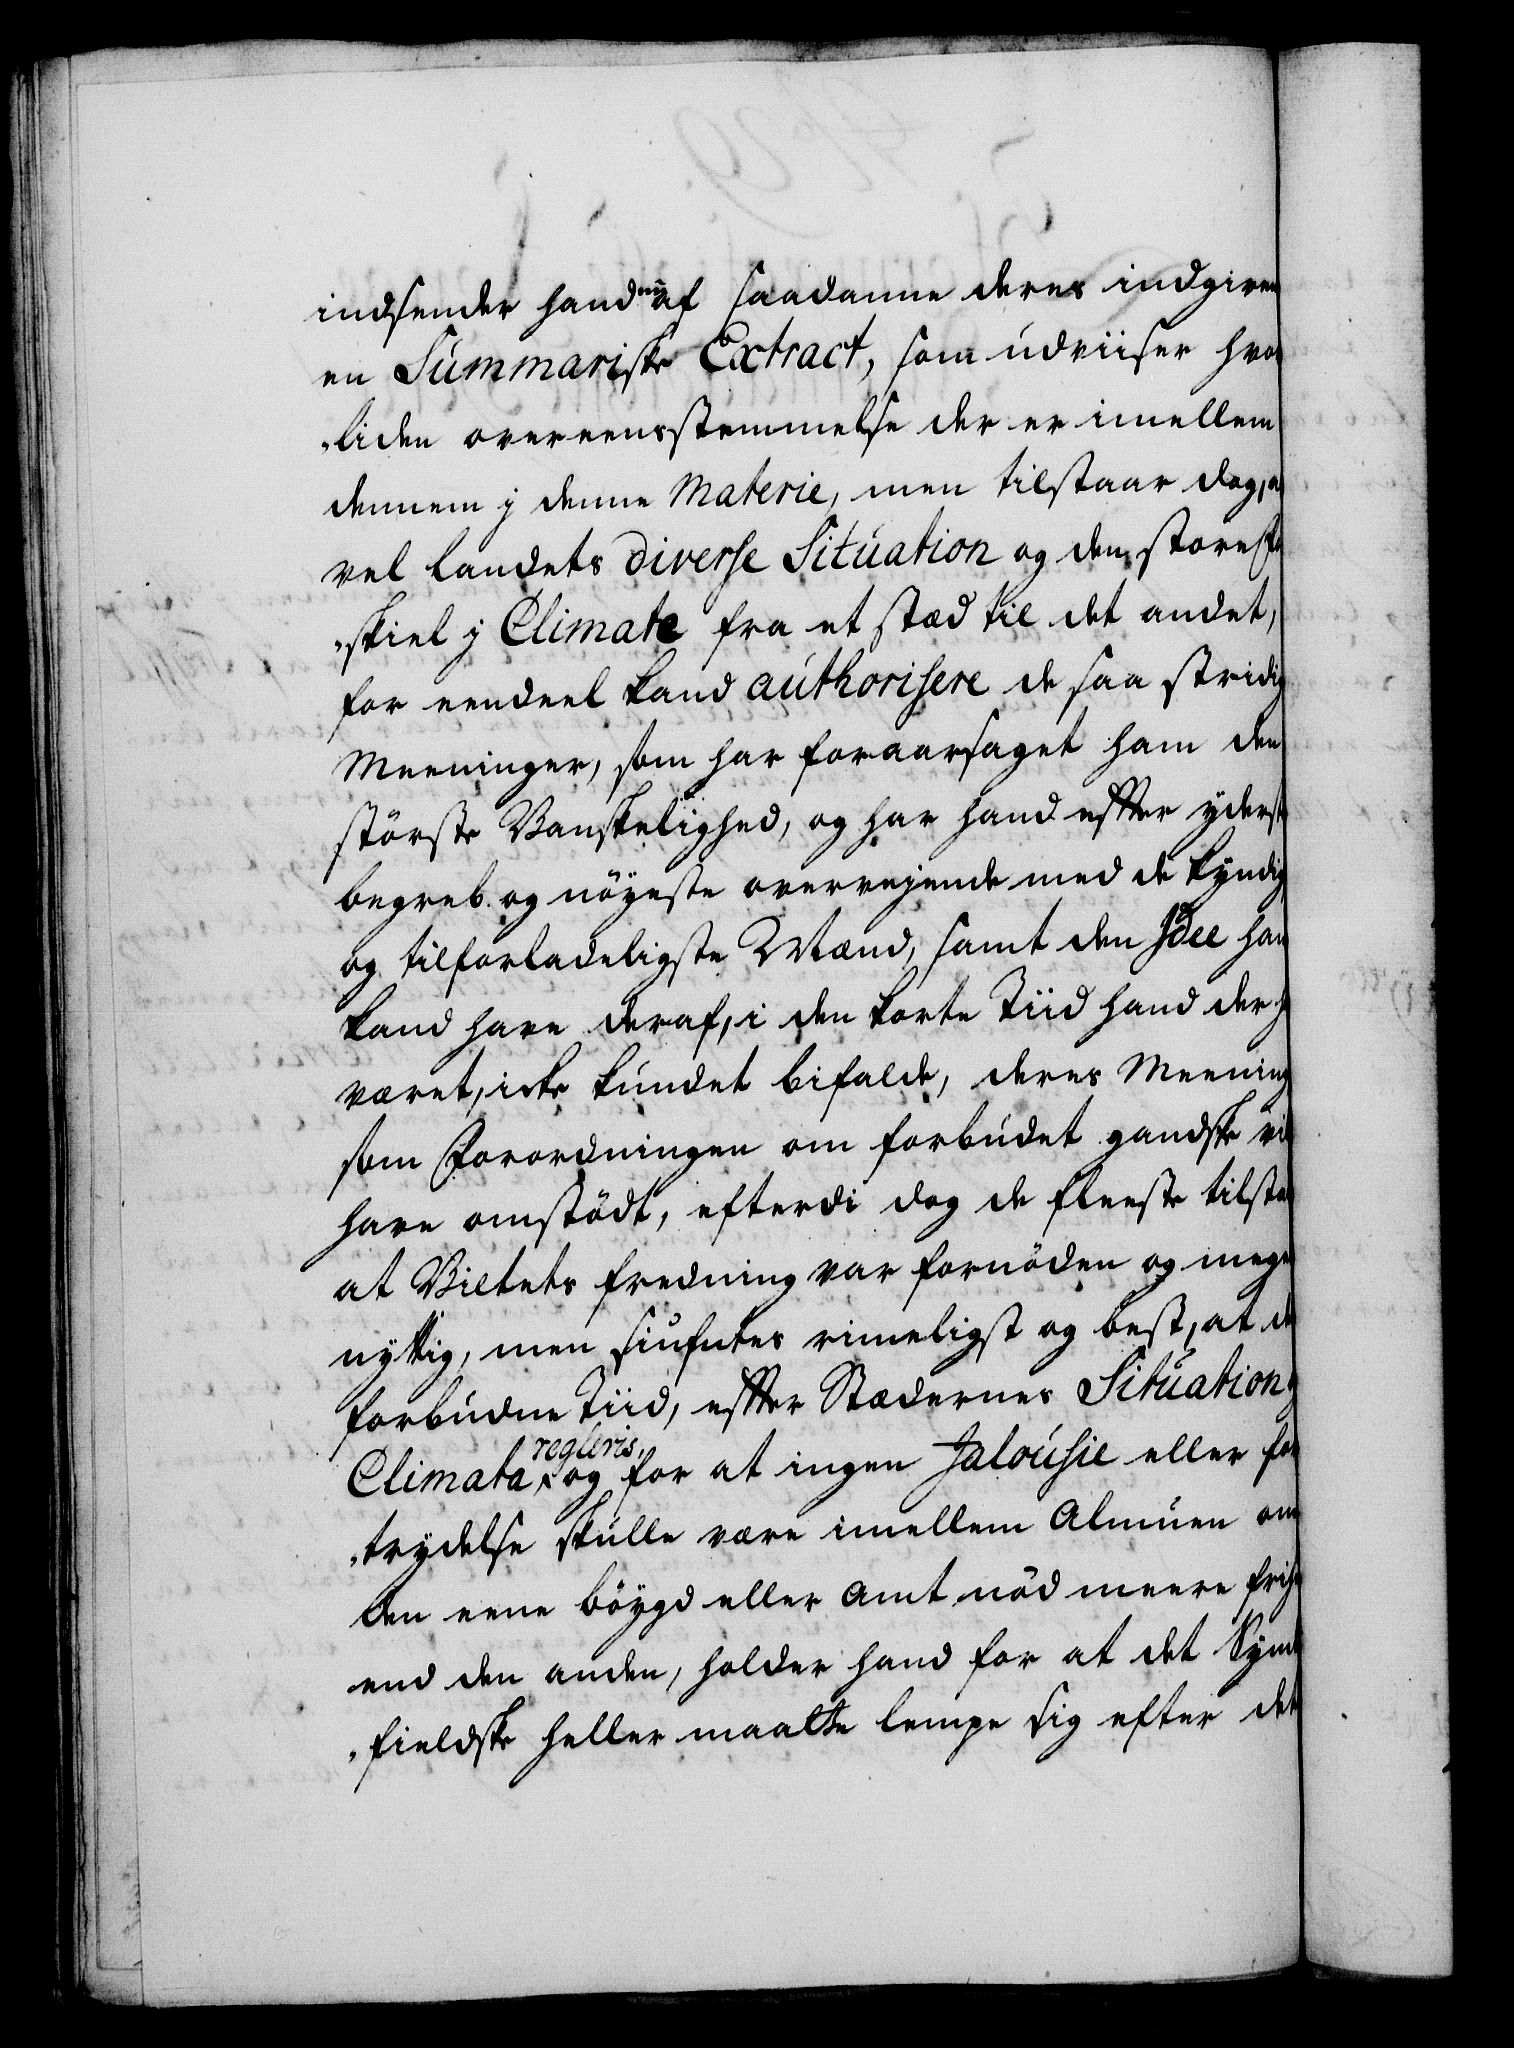 indsender hand nu af saadanne deres indgiven
en Summariske Extract, som udviiser hvor
„liden overeensstemmelse der er imellem
dennem j denne Materie, men tilstaar dog, a
vel landets diverse Situation og den store fo
„skiel j Climate fra et stæd til det andet,
for eendeel kand authorisere de saa stridig
Meeninger, som har foraarsaget ham den
störste Vanskelighed, og har hand efter yderst
begreb og nöyeste overvejende med de kyndig
og tilforladeligste Mænd, samt den Idee han
kand have deraf, i den korte Tiid hand der h
været, icke kundet bifalde, deres Meening
som Forordningen om forbudet gandske vil
have omstödt, efterdi dog de fleeste tilstaa
at Vildtets fredning var fornöden og meget
nyttig, men siufntes rimeligst og best, at de
forbudne Tiid, efter Stædernes Situation og
Climata regleris, og for at ingen Jalousie eller for
„trydelse skulle være imellem Almuen om
den eene böygd eller Amt nöd meere frih
end den anden, holder hand for at det Synd
„fieldske heller maatte lempe sig efter det